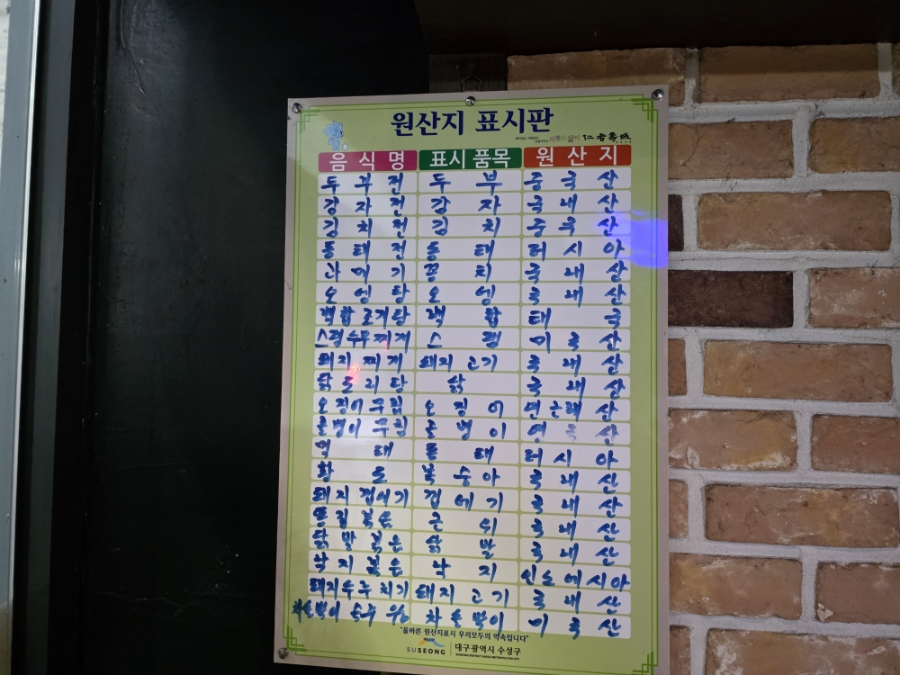 원산지 표시판
仁者壽城
음식명 표시품목 원산지
두부전 두부 중국산
감자전 감자 국내산
김치전 김치 중국산
동태전 동태 러시아
과메기 꽁치 국내산
오뎅탕 오뎅 국내산
백합조개탕 백합 태국
스팸두부찌개 스팸 미국산
돼지찌개 돼지고기 국내산
닭도리탕 닭 국내산
오징어무침 오징어 산
골뱅이무침 골뱅이 영국산
먹태 동태 러시아
황도 복숭아 국내산
돼지껍데기 껍데기 국내산
똥집볶음 근위 국내산
닭발볶음 닭발 국내산
낙지볶음 낙지 인도네시아
돼지두루치기 돼지고기 국내산
차돌박이 차돌박이 미국산
"올바른 원산지표시 우리모두의 약속입니다"
SUSEONG 대구광역시 수성구